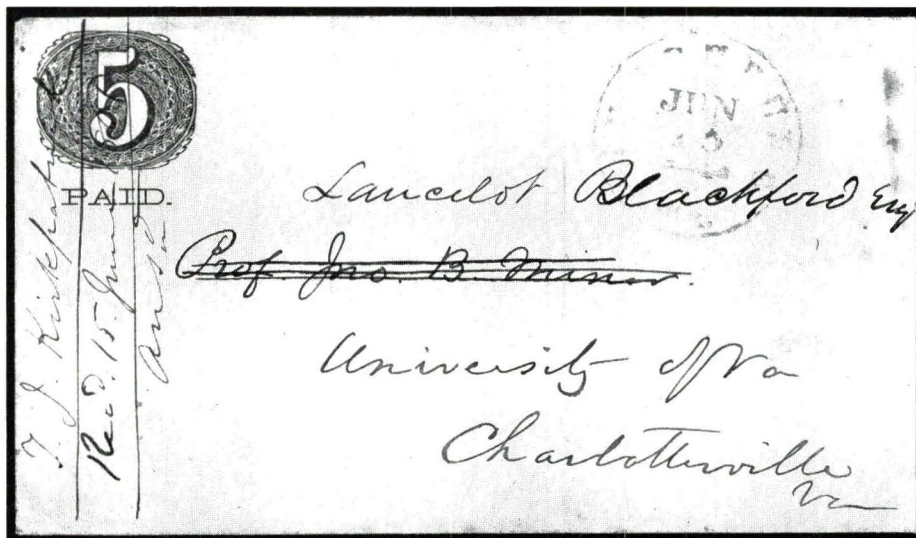 5
PAID.
JUN
Lancelot Blackford Esq
Prof Jno. B. Minor.
University of Va
Charlottesville
Va
T. J. Kirkpatrick
Rec'd. 15. June